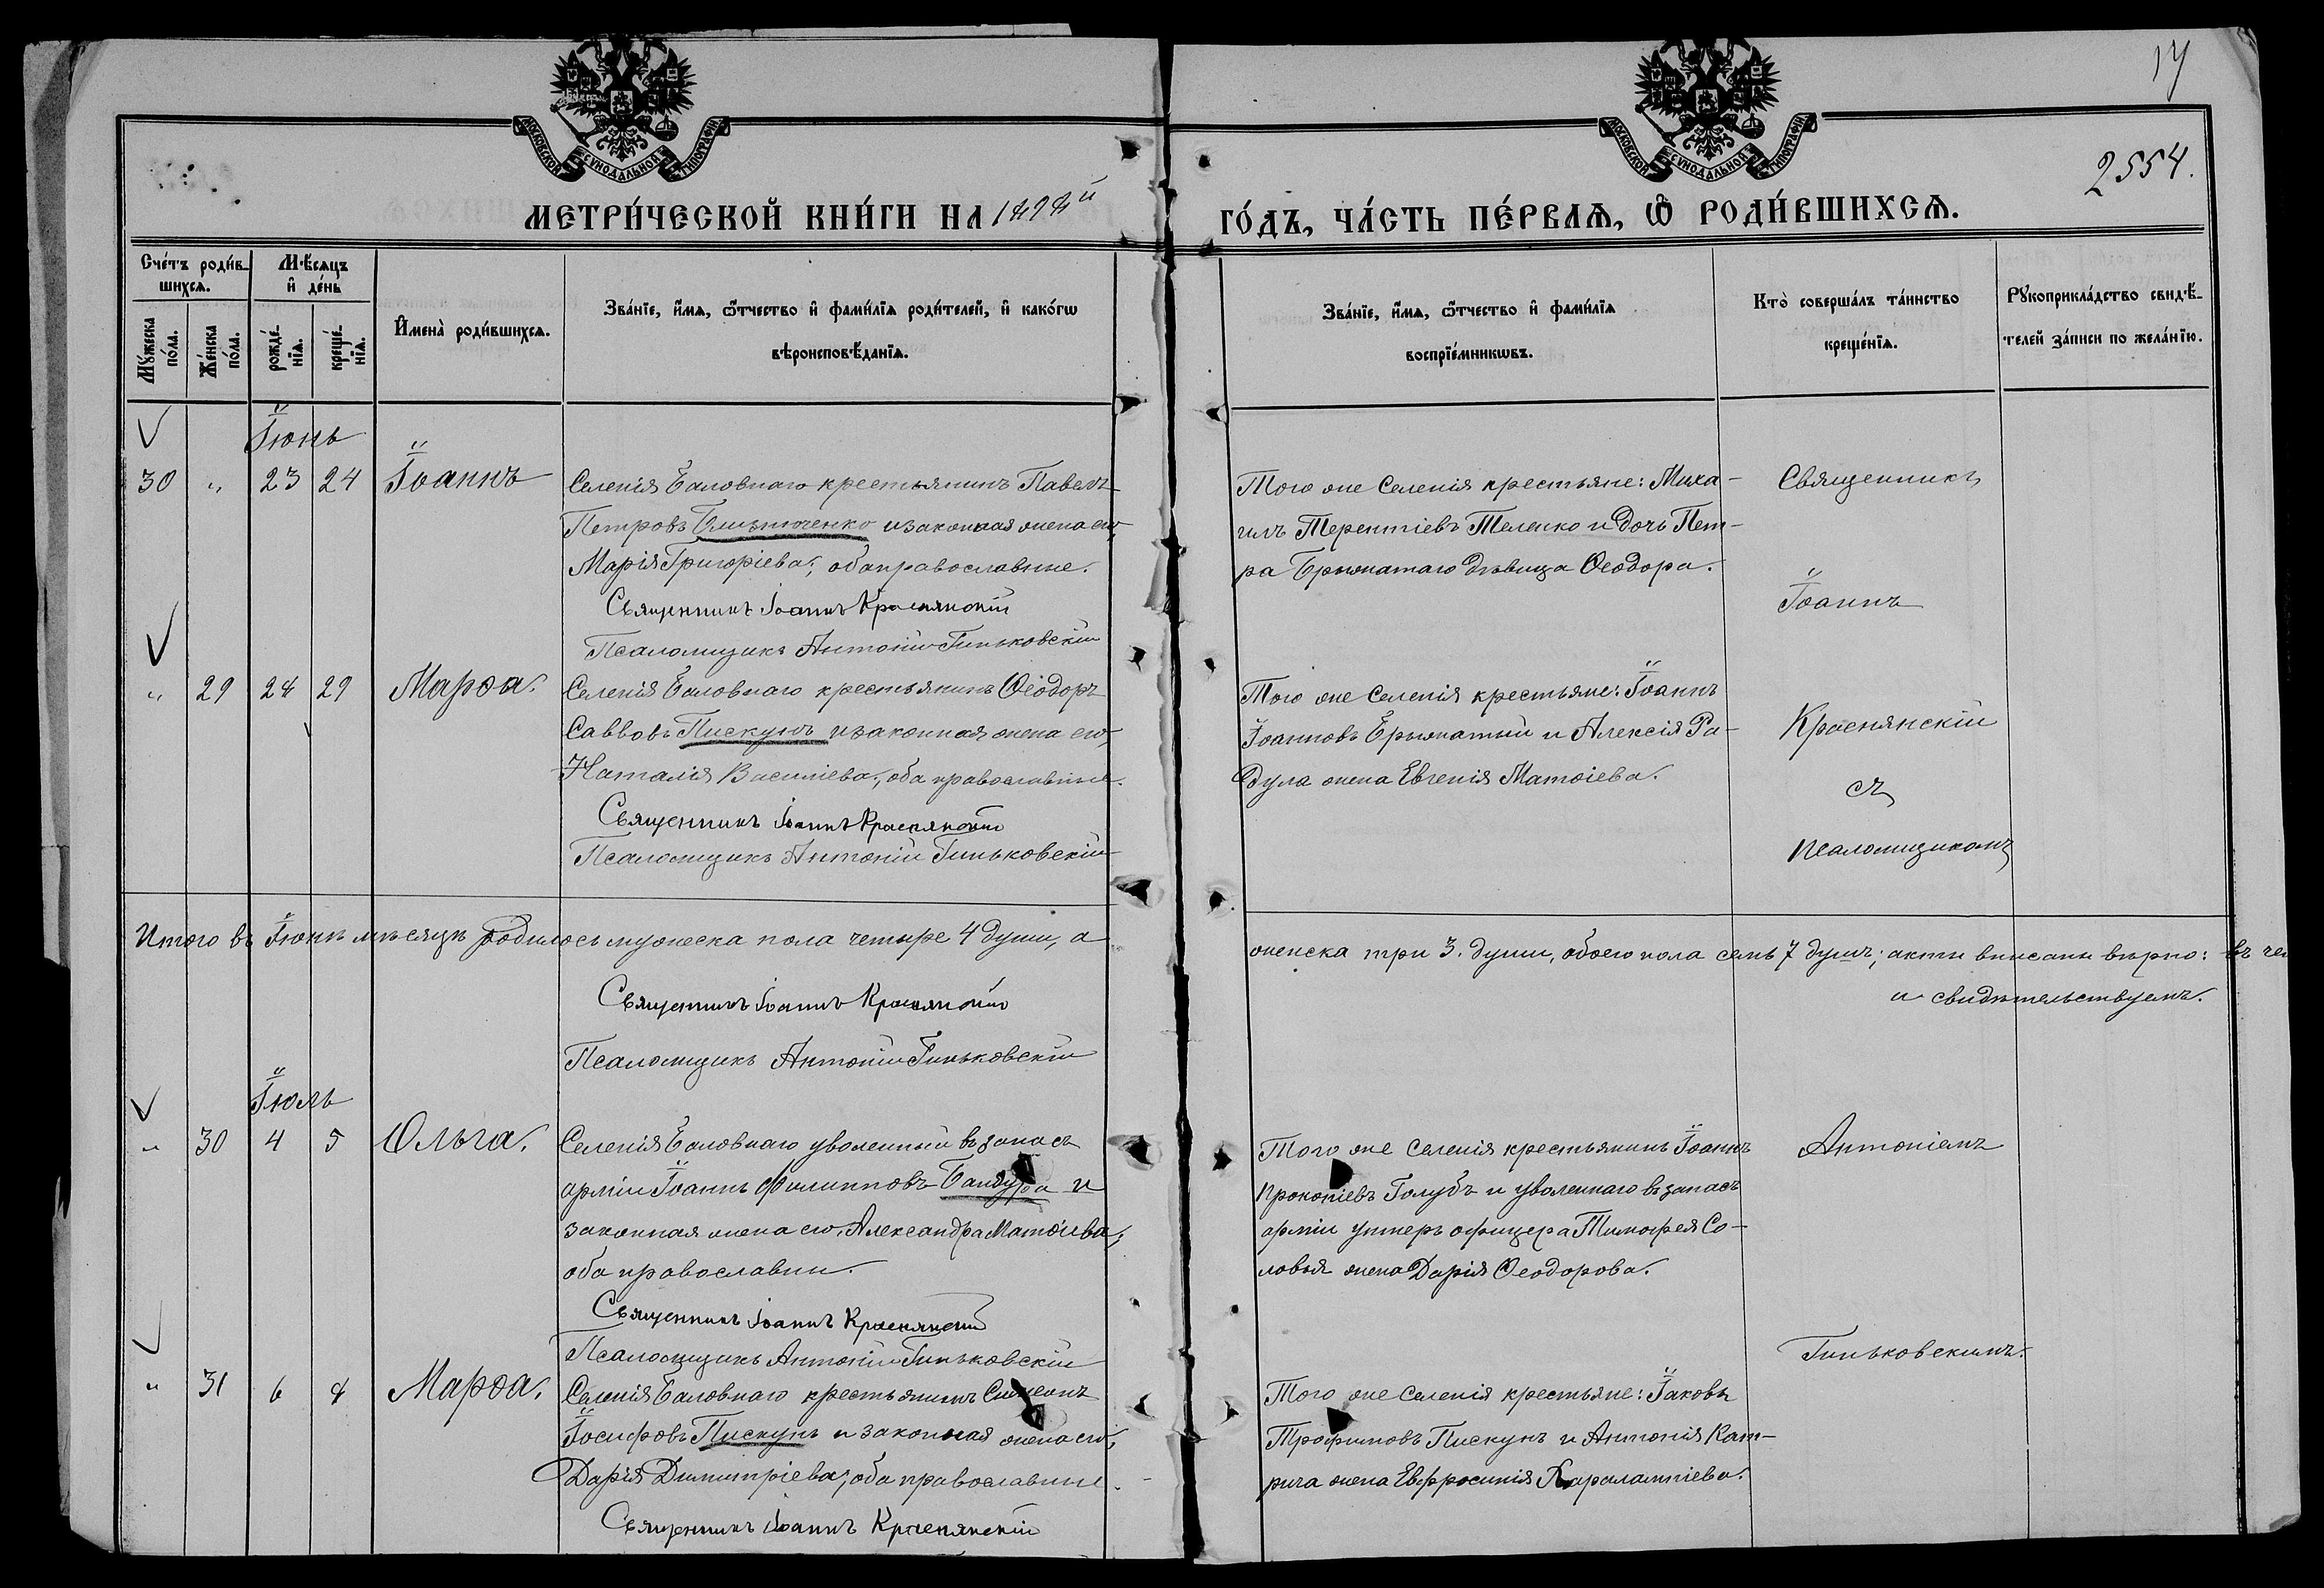 17
2554.
МОСКОВСКОЙ СУНОДАЛЬНОЙ ТИПОГРАФІИ
МОСКОВСКОЙ СУНОДАЛЬНОЙ ТИПОГРАФІИ
МЕТРИ́ЧЕСКОЙ КНИ́ГИ НА 1898й
ГО́ДЪ, ЧА́СТЬ ПЕ́РВАѦ, Ѡ҆ РОДИ́ВШИХСѦ.
Сче́тъ роди́в-
шихсѧ.
Мꙋ́жеска по́ла.
Же́нска по́ла.
Мѣ́сѧцъ
и҆ де́нь
рожде́-нїѧ.
креще́-нїѧ.
И҆мена̀ роди́вшихсѧ.
Зва́нїе, и҆́мѧ, ѻ҆́тчество и҆ фами́лїѧ роди́телей, и҆ како́гѡ
вѣроисповѣ́данїѧ.
Зва́нїе, и҆́мѧ, ѻ҆́тчество и҆ фами́лїѧ
воспрїе́мникѡвъ.
Кто̀ соверша́лъ та́инство
креще́нїѧ.
Рꙋкоприкла́дство свидѣ́-
телей за́писи по жела́нїю.
Іюнь
30 " 23 24 Іоаннъ
Селенія Баловнаго крестьянинъ Павелъ
Петровъ и законная жена его,
Марія Григоріева; оба православные.
Священникъ Іоаннъ Краснянскій
Псаломщикъ Антоній Гиньковскій
Того же селенія крестьяне: Миха-
илъ Терентіевъ Теленко и дочь Пет-
ра Брюхатаго дѣвица Ѳеодора.
Священникъ
Іоаннъ
" 29 28 29 Марѳа.
Селенія Баловнаго крестьянинъ Ѳеодоръ
Саввовъ Пискунъ и законная жена его,
Наталія Василіева; оба православные.
Священникъ Іоаннъ Краснянскій
Псаломщикъ Антоній Гиньковскій
Того же селенія крестьяне: Іоаннъ
Іоанновъ Брюхатый и Алексія Ра-
дула жена Евгенія Матѳіева.
Краснянскій
съ
псаломщикомъ
Итого въ Іюнѣ мѣсяцѣ родилось мужеска пола четыре 4 души, а
женска три 3. души, обоего пола семь 7 душъ; акты вписаны вѣрно: въ че
и свидѣтельствуемъ.
Священникъ Іоаннъ Краснянскій
Псаломщикъ Антоній Гиньковскій
Іюль
" 30 4 5 Ольга.
Селенія Баловнаго уволенный въ запасъ
арміи Іоаннъ Филипповъ Бандура и
законная жена его, Александра Матѳіева;
оба православны.
Священникъ Іоаннъ Краснянскій
Псаломщикъ Антоній Гиньковскій
Того же селенія крестьянинъ Іоаннъ
Прокопіевъ Голубъ и уволеннаго въ запасъ
арміи унтеръ офицера Тимофея Со-
ловья жена Дарія Ѳеодорова.
Антоніемъ
Гиньковскимъ.
" 31 6 8 Марѳа.
Селенія Баловнаго крестьянинъ Симеонъ
Іосифовъ Пискунъ и законная жена его,
Дарія Димитріева; оба православные.
Священникъ Іоаннъ Краснянскій
Того же селенія крестьяне: Іаковъ
Трофимовъ Пискунъ и Антонія Кат-
рича жена Евфросинія Харалампіева.